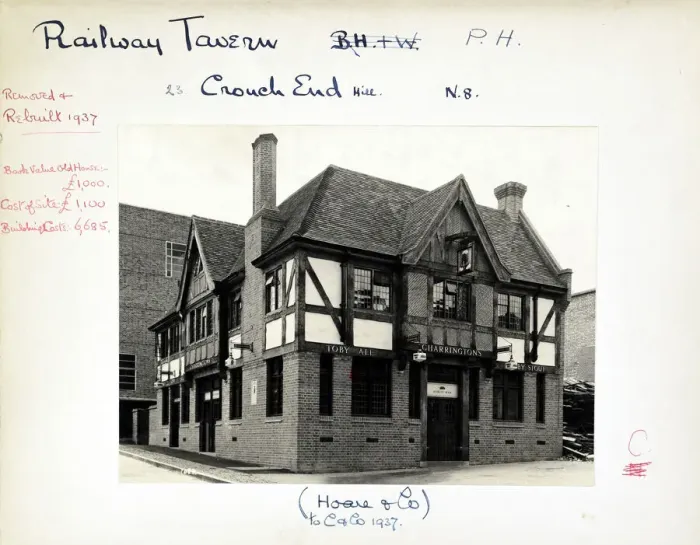 Railway Tavern B.H. & W. P.H.
23 Crouch End Hill. N.8.
Removed &
Rebuilt 1937
Book Value Old House:-
£1000.
Cost of Site £1,100
Building Costs 6,685.
TOBY ALE
CHARRINGTONS
TOBY STOUT
C.
(Hoare & Co)
to C & Co 1937.